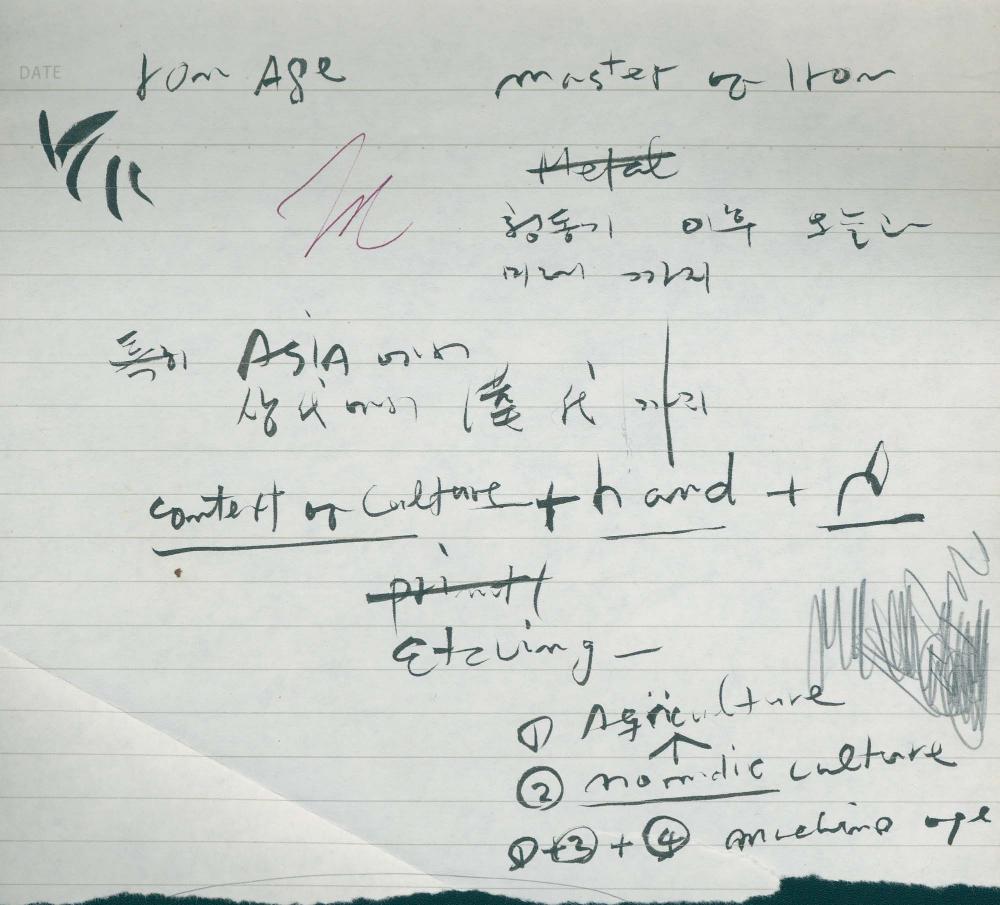 DATE
Iron Age master of Iron
Metal
청동기 이후 오늘과
미래 까지
특히 ASIA 에서
상代 에서 漢代 까지
context of Culture + hand +
print
Etching —
① Agriculture
② nomidic culture
①+③+④ machine age